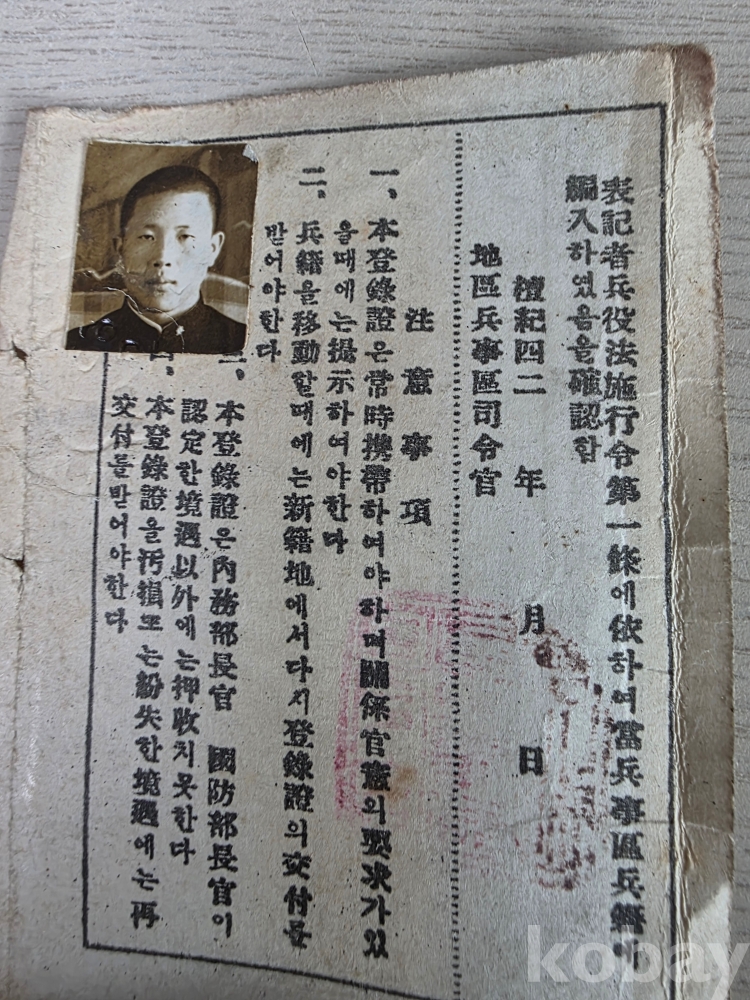 表記者兵役法施行令第一條에依하여當兵事區兵籍에
編入하였음을確認함
檀紀四二 年 月 日
地區兵事區司令官
注意事項
一、本登錄證은常時携帶하여야하며關係官憲의要求가있
을때에는提示하여야한다
二、兵籍을移動할때에는新籍地에서다시登錄證의交付를
받어야한다
本登錄證은內務部長官 國防部長官이
認定한境遇以外에는押收치못한다
本登錄證을汚損또는紛失한境遇에는再
交付를받어야한다
kobay